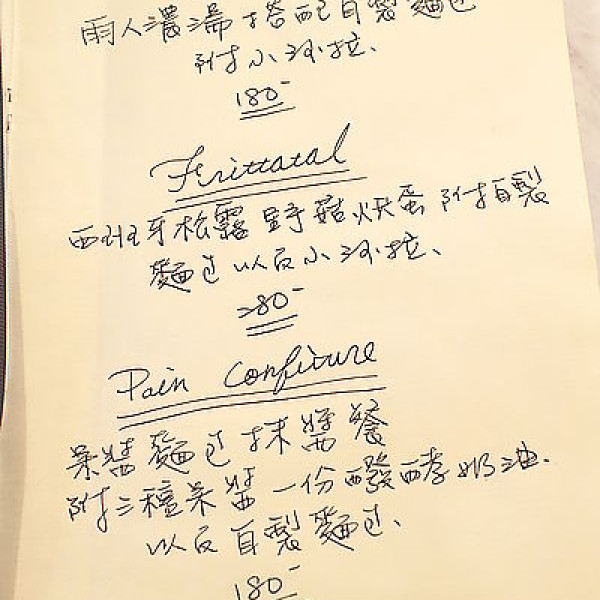 兩人濃湯搭配自製麵包
附小沙拉、
180-
Frittatal
西班牙松露野菇烘蛋附自製
麵包以及小沙拉、
280-
Pain Confiture
果醬麵包抹醬餐
附三種果醬一份發酵奶油.
以及自製麵包、
180-